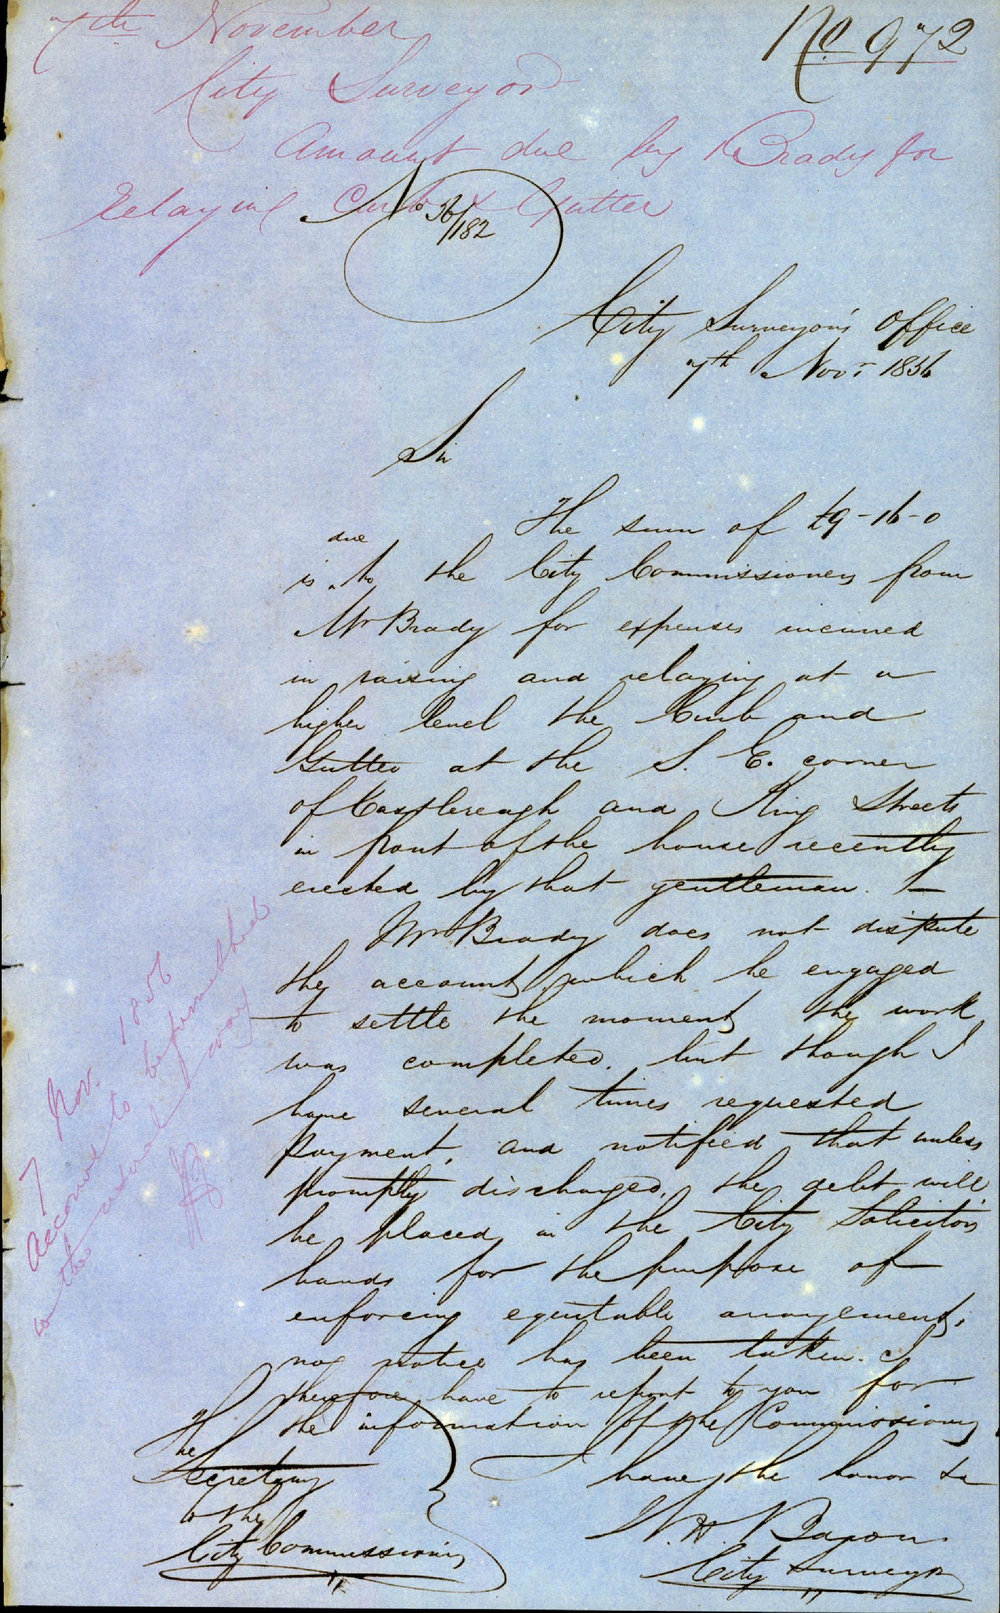 7th November
No. 972
City Surveyor
Amount due by Brady for
relaying Curb & Gutter
No 56/182
City Surveyor's Office
7th Novr 1856
Sir
The sum of £9-16-0
is due to the City Commissioners from
Mr Brady for expenses incurred
in raising and relaying at a
higher level the Curb and
Gutter at the S. E. corner
of Castlereagh and King Streets
in front of the house recently
erected by that gentleman. —
Mr Brady does not dispute
the account, which he engaged
to settle the moment the work
was completed. but though I
have several times requested
payment, and notified that unless
promptly discharged, the debt will
be placed in the City Solicitor's
hands for the purpose of
enforcing equitable arrangement,
no notice has been taken. I
therefore have to report to you for
the information of the Commissioners
I have the honor &c
W. H.
City Surveyor
The
Secretary
to the
City Commissioners
7 Nov. 1856
Account to be furnished
in the usual way